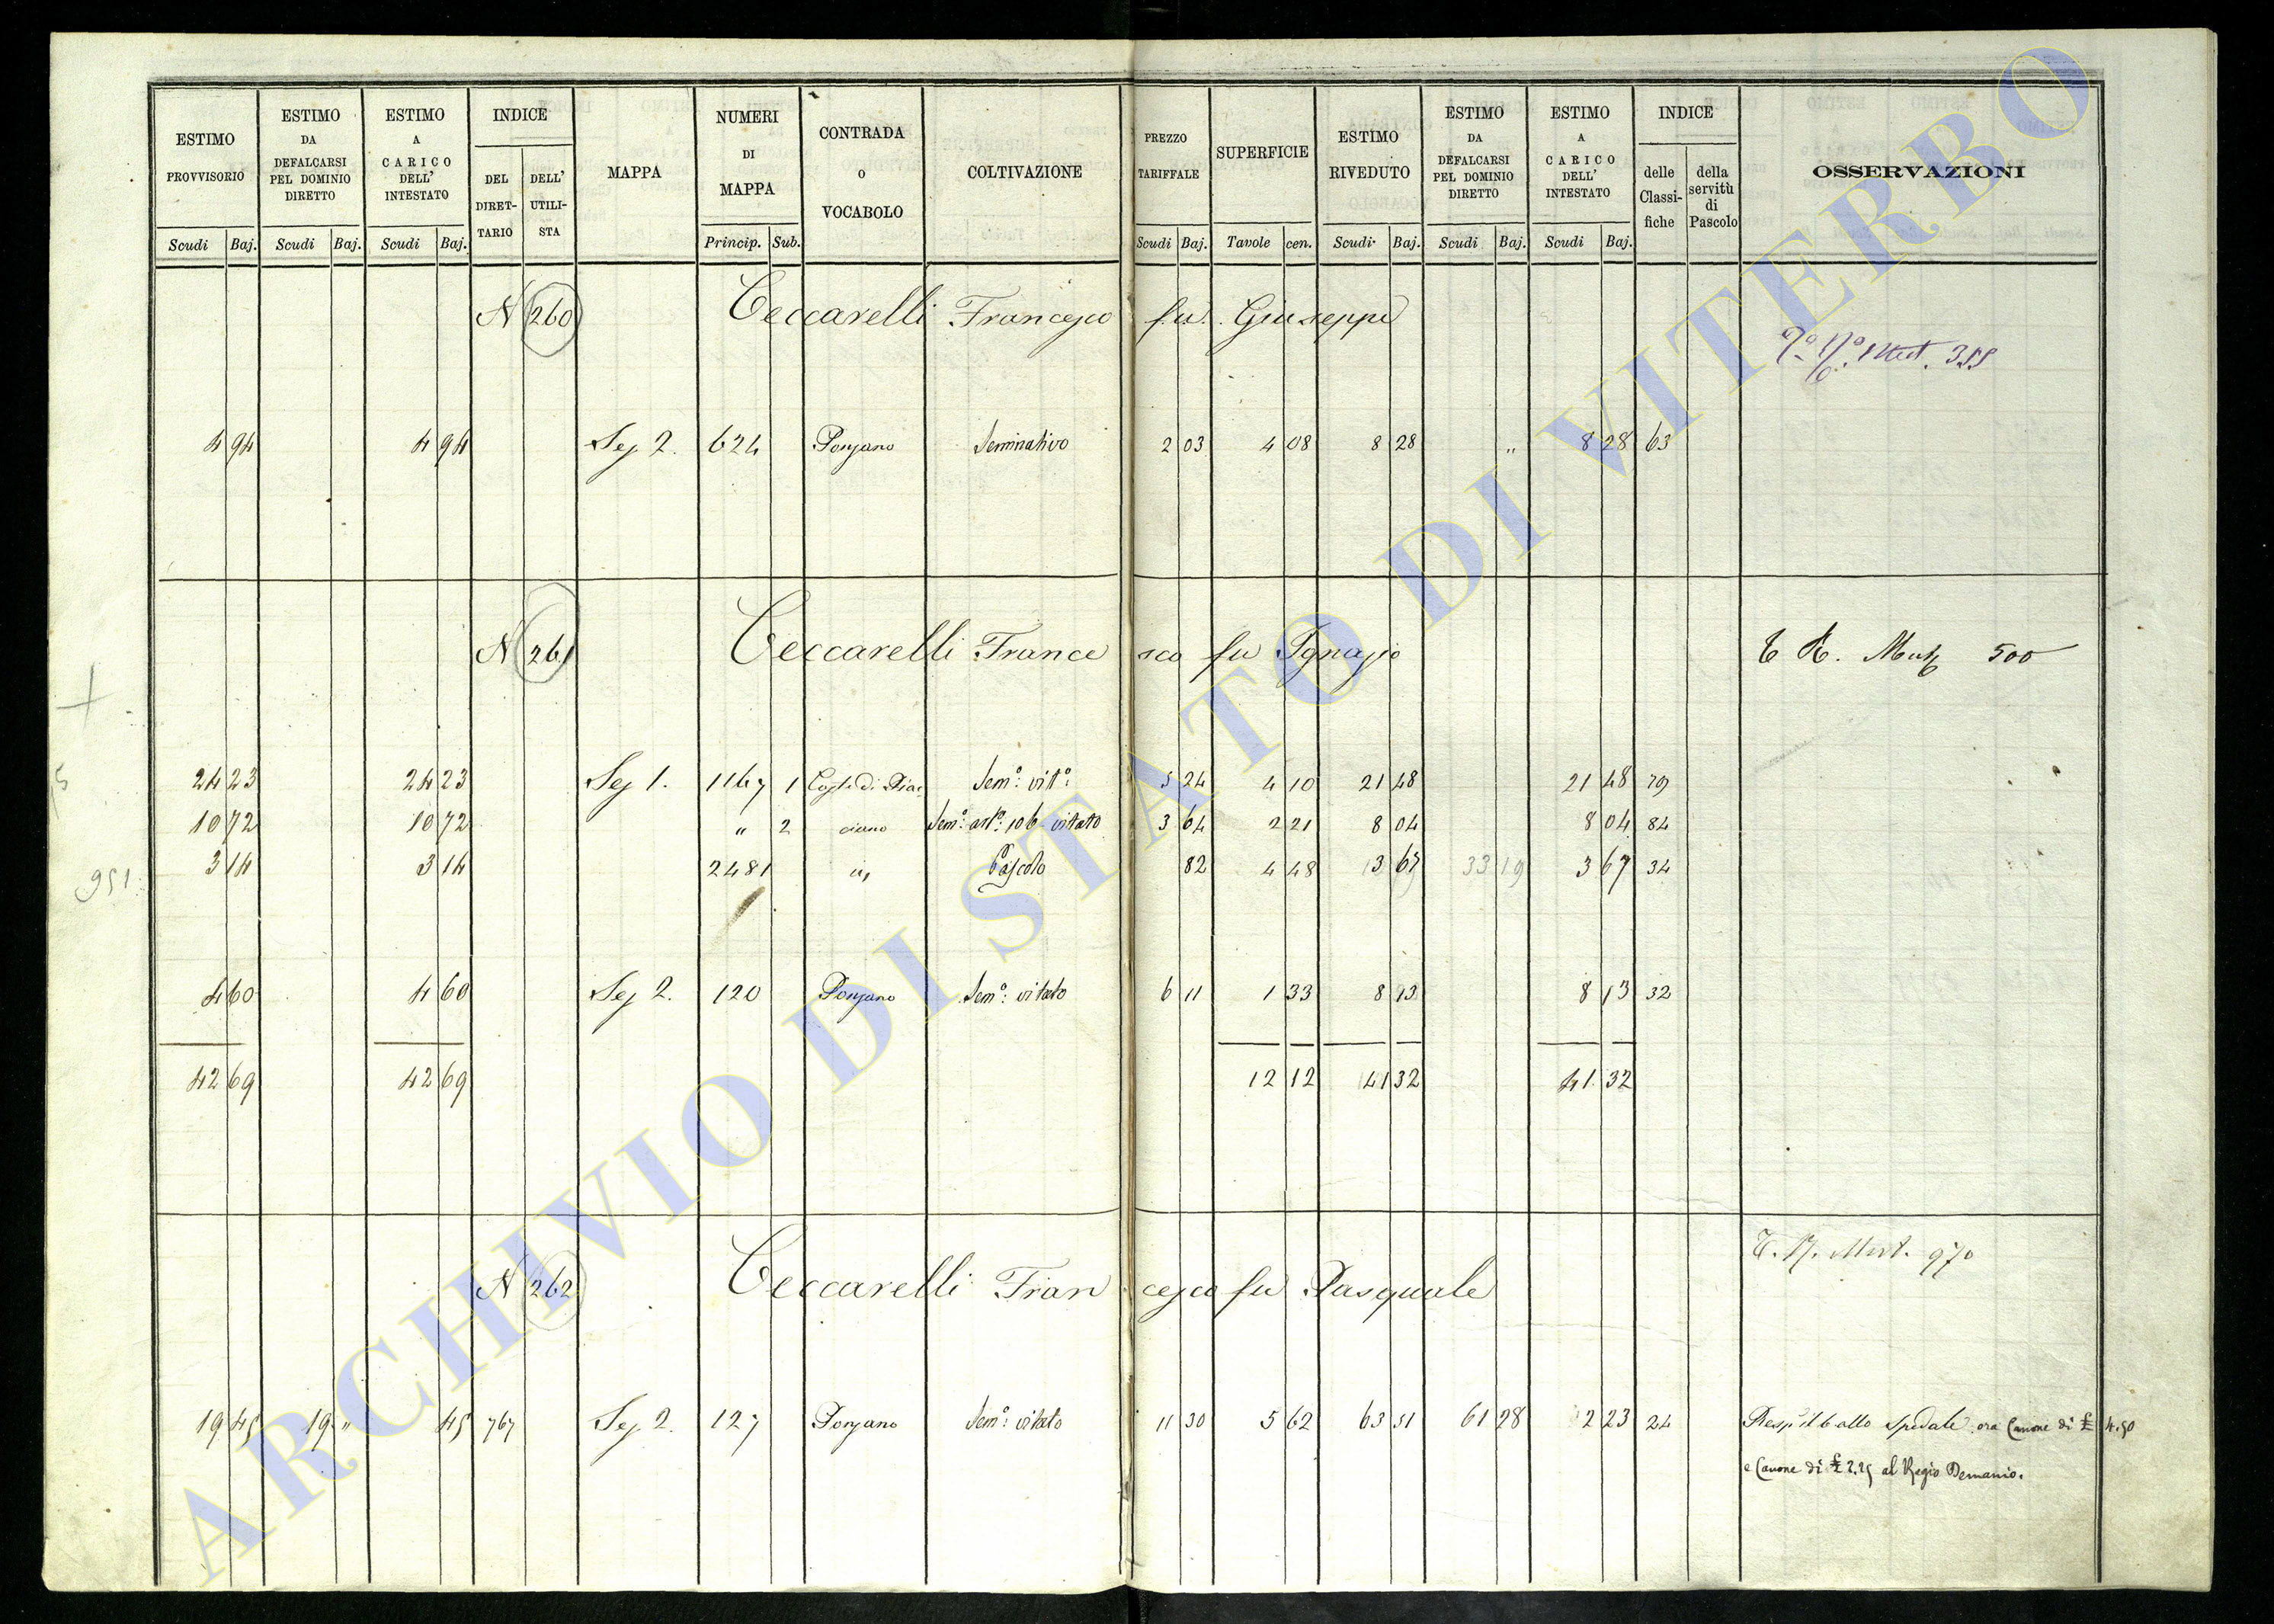 ESTIMO PROVVISORIO Scudi Baj. | ESTIMO DA DEFALCARSI PEL DOMINIO DIRETTO Scudi Baj. | ESTIMO A CARICO DELL' INTESTATO Scudi Baj. | INDICE DEL DIRETTARIO DELL' UTILISTA | MAPPA | NUMERI DI MAPPA Princip. Sub. | CONTRADA O VOCABOLO | COLTIVAZIONE | PREZZO TARIFFALE Scudi Baj. | SUPERFICIE Tavole cen. | ESTIMO RIVEDUTO Scudi Baj. | ESTIMO DA DEFALCARSI PEL DOMINIO DIRETTO Scudi Baj. | ESTIMO A CARICO DELL' INTESTATO Scudi Baj. | INDICE delle Classifiche della servitù di Pascolo | OSSERVAZIONI
N 260 Ceccarelli Francesco fu Giuseppe
355
4 94 4 94 Sez 2. 624 Ponzano Seminativo 2 03 4 08 8 28 " 8 28 63
N 261 Ceccarelli Francesco fu Ignazio 500
24 23 24 23 Sez 1. 1167 1 Coste di Piac Sem.o vit.o 5 24 4 10 21 48 21 48 79
10 72 10 72 " 2 ciano Sem.o vitato 3 64 2 21 8 04 8 04 84
951 3 14 3 14 2481 " Pascolo 82 4 48 3 67 33 19 3 67 34
4 60 4 60 Sez 2. 120 Ponzano Sem.o vitato 6 11 1 33 8 13 8 13 32
42 69 42 69 12 12 41 32 41 32
N 262 Ceccarelli Francesco fu Pasquale 970
19 45 19 " 45 767 Sez 2. 127 Ponzano Sem.o vitato 11 30 5 62 63 51 61 28 2 23 24 allo Spedale ora Canone di £ 4.50
e Canone di £ 2.25 al Regio Demanio.
ARCHIVIO DI STATO DI VITERBO